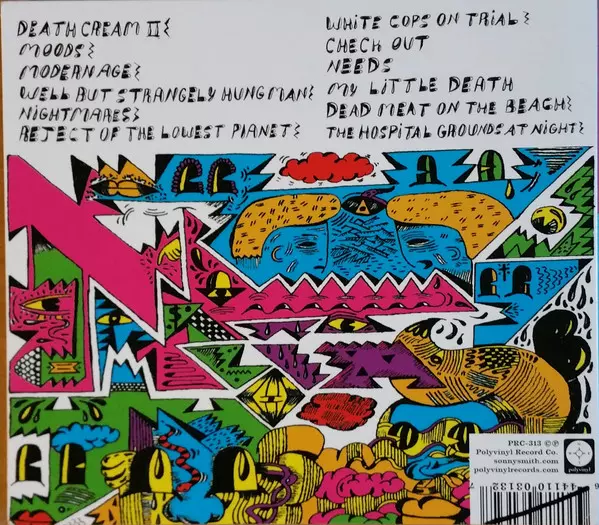 DEATH CREAM II
MOODS
MODERN AGE
WELL BUT STRANGELY HUNG MAN
NIGHTMARES
REJECT OF THE LOWEST PLANET
WHITE COPS ON TRIAL
CHECK OUT
NEEDS
MY LITTLE DEATH
DEAD MEAT ON THE BEACH
THE HOSPITAL GROUNDS AT NIGHT
$
PRC-313 ©℗
Polyvinyl Record Co.
sonnysmith.com
polyvinylrecords.com
polyvinyl
44110 03132